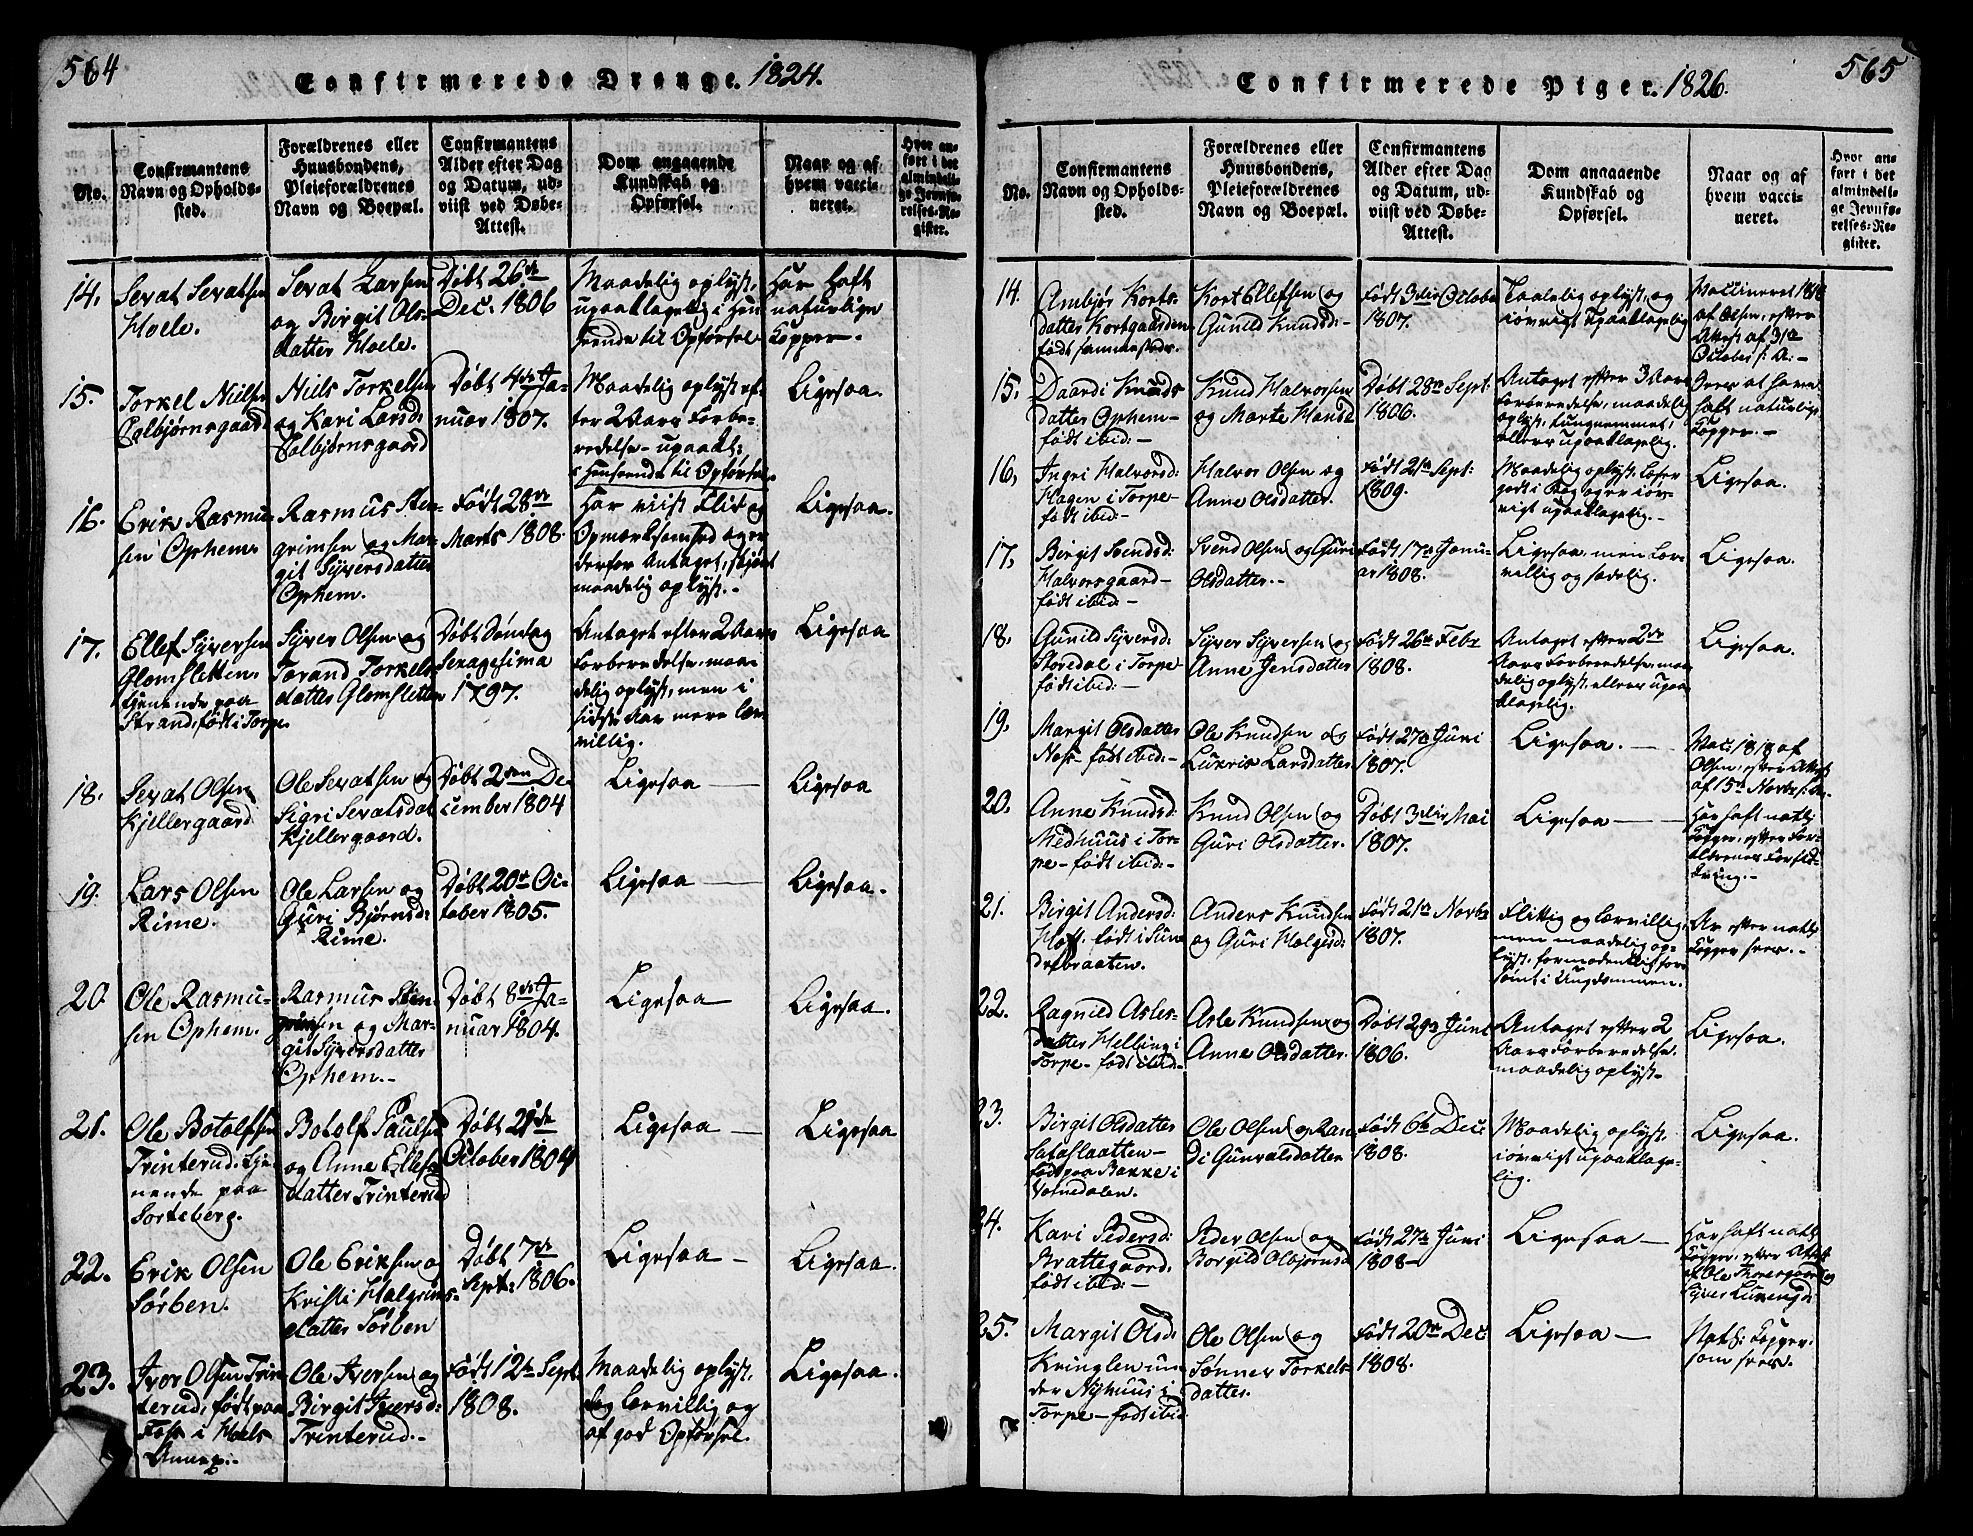 564
Confirmerede Drenge. 1824.
No.
Confirmantens
Navn og Opholds-
sted.
Forældrenes eller
Huusbondens,
Pleieforældrenes
Navn og Boepæl.
Confirmantens
Alder efter Dag
og Datum, ud-
viist ved Døbe-
Attest.
Dom angaaende
Kundskab og
Opførsel.
Naar og af
hvem vacci-
neret.
Hvor an-
ført i det
almindeli-
ge Jevnfø-
relses-Re-
gister.
14.
Sevat Sevatsen
Hoele.
Sevat Larsen
og Birgit Ols-
datter Hoele.
Døbt 26de
Dec. 1806
Maadelig oplyst,
upaaklagelig i Hen-
seende til Opførsel
Har haft
naturlige
Kopper.
15.
Torkel Nielsen
Tolbjørnsgaard
Niels Torkelsen
og Kari Larsd:
Tolbjørnsgaard
Døbt 4de Ja-
nuar 1807.
Maadelig oplyst ef-
ter 2 Aars Forbe-
redelse - upaakl:
i Henseende til Opførsel.
Ligesaa.
16.
Erik Rasmu-
sen Ophem.
Rasmus Sten-
grimsen og Mar-
git Syversdatter
Ophem.
Født 28de
Marts 1808.
Har viist Flid og
Opmærksomhed og er
derfor Antaget, skjønt
maadelig oplyst. -
Ligesaa.
17.
Ellef Syversen
Glomsletten
tjenende paa
Strand, født i Torpe.
Syver Olsen og
Torand Torkels-
datter Glomsletten
Døbt Søndag
Sexagesima
1797.
Antaget efter 2 Aars
Forberedelse, maa-
delig oplyst, men i
sidste Aar mere lær-
villig.
Ligesaa
18.
Sevat Olsen
Kjellergaard
Ole Sevatsen og
Sigri Sevatsdat
Kjellergaard.
Døbt 2den De-
cember 1804
Ligesaa —
Ligesaa
19.
Lars Olsen
Rime.
Ole Larsen og
Guri Bjørnsd:
Rime.
Døbt 20de Oc-
tober 1805.
Ligesaa —
Ligesaa.
20.
Ole Rasmu-
sen Ophem.
Rasmus Sten-
grimsen og Mar-
git Syversdatter
Ophem. -
Døbt 8de Ja-
nuar 1804.
Ligesaa —
Ligesaa.
21.
Ole Botolfsen
Trinterud. tje-
nende paa
Sorteberg.
Botolf Paulsen
og Anne Ellefs-
datter Trinterud
Døbt 21de
October 1804
Ligesaa —
Ligesaa
22.
Erik Olsen
Sørben.
Ole Eriksen og
Kristi Halgrims-
datter Sørben
Døbt 7de
Sept: 1806.
Ligesaa —
Ligesaa.
23.
Iver Olsen Trin-
terud, født paa
Foss i Hoels
Annex. -
Ole Iversen og
Birgit Iversd:
Trinterud. -
Født 12te Sept.
1808.
Maadelig oplyst,
dog lærvillig og
af god Opførsel.
Ligesaa.
565
Confirmerede Piger. 1826.
No.
Confirmantens
Navn og Opholds-
sted.
Forældrenes eller
Huusbondens,
Pleieforældrenes
Navn og Boepæl.
Confirmantens
Alder efter Dag
og Datum, ud-
viist ved Døbe-
Attest.
Dom angaaende
Kundskab og
Opførsel.
Naar og af
hvem vacci-
neret.
Hvor an-
ført i det
almindeli-
ge Jevnfø-
relses-Re-
gister.
14.
Ambjør Korts-
datter Kortgaarden
født sammesteds.
Kort Ellefsen og
Gunild Knudsd: -
Født 3die Octobr
1807.
Taalelig oplyst, og
iøvrigt upaaklagelig
Vaccineret
af Olsen, efter
Attest af 31te
October s: A. -
15.
Daardi Knuds
datter Ophem -
født ibid: -
Knud Halvorsen
og Marte
Døbt 28de Sept.
1806.
Antaget efter 3 Aars
Forberedelse, maadelig
oplyst, tungnemmet,
ellers upaaklagelig.
Sees at have
haft naturlige
Kopper. -
16.
Ingri Halvorsd:
Hagen i Torpe -
født ibid: -
Halvor Olsen og
Anne Olsdatter.
Født 21de Sept:
1809.
Maadelig oplyst. Læser
godt i Bog og er iøv-
rigt upaaklagelig. -
Ligesaa.
17.
Birgit Svendsd:
Halvorsgaard -
født ibid: -
Svend Olsen og Guri
Olsdatter. -
Født 17de Janu-
ar 1808.
Ligesaa, men lær-
villig og sædelig.
Ligesaa.
18.
Gunild Syversd:
Storedal i Torpe
født ibid: -
Syver Syversen og
Anne Jensdatter
Født 26de Febr
1808.
Antaget efter 2de
Aars Forberedelse, maa-
delig oplyst, ellers upaa-
klagelig.
Ligesaa.
19.
Margit Olsdatter
Ness - født ibid: -
Ole Knudsen og
Lukris Larsdatter
Født 27de Juni
1807.
Ligesaa. —
Vac: 1818 af
Olsen, efter Attest
af 15de Novbr s: A.
20.
Anne Knudsd:
Medhuus i Tor-
pe - født ibid: -
Knud Olsen og
Guri Olsdatter.
Døbt 3die Mai
1807.
Ligesaa —
Har haft natl:
Kopper, efter For-
ældrenes Forsik-
kring. -
21.
Birgit Andersd:
Hoff. født i Sun-
drebraaten.
Anders Knudsen
og Guri Helgesd:
Født 21de Novbr
1807.
Flittig og lærvillig,
men maadelig op-
lyst, formodentlig for-
sømt i Ungdommen.
Ar efter natl:
Kopper sees. -
22.
Ragnild Asles-
datter Helling i
Torpe - født ibid: -
Asle Knudsen og
Anne Olsdatter.
Døbt 29de Juni
1806.
Antaget efter 2
Aars Forberedelse.
maadelig oplyst -
Ligesaa.
23.
Birgit Olsdatter
Sataslaatten -
født paa Bakke i
Vornedalen.
Ole Olsen og Ran-
di Gunvalsdatter
Født 6te Dec:
1808.
Maadelig oplyst.
iøvrigt upaaklage-
lig.
Ligesaa.
24.
Kari Pedersd:
Brattegaard.
født ibid: -
Peder Olsen og
Borgild Olbjørnsd
Født 27de Juni
1808 -
Ligesaa —
Har haft natl:
Kopper, efter Attest
af Ole Thoresgaard og
Syver
25.
Margit Olsd:
Kringlen un-
der Nyhuus i
Torpe - født ibid:
Ole Olsen og
Sønnev Torkels-
datter.
Født 20de Dec:
1808.
Ligesaa —
Natl: Kopper.
som sees.